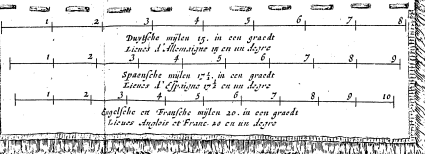 1 2 3 4 5 6 7 8
Duytsche mijlen 15. in een graedt
Lieues d'Allemaigne 15 en un degre
1 2 3 4 5 6 7 8 9
Spaensche mijlen 17½. in een graedt
Lieues d'Espaigne 17½ en un degre
1 2 3 4 5 6 7 8 9 10
Engelsche en Fransche mijlen 20. in een graedt
Lieues Anglois et Franc. 20 en un degre